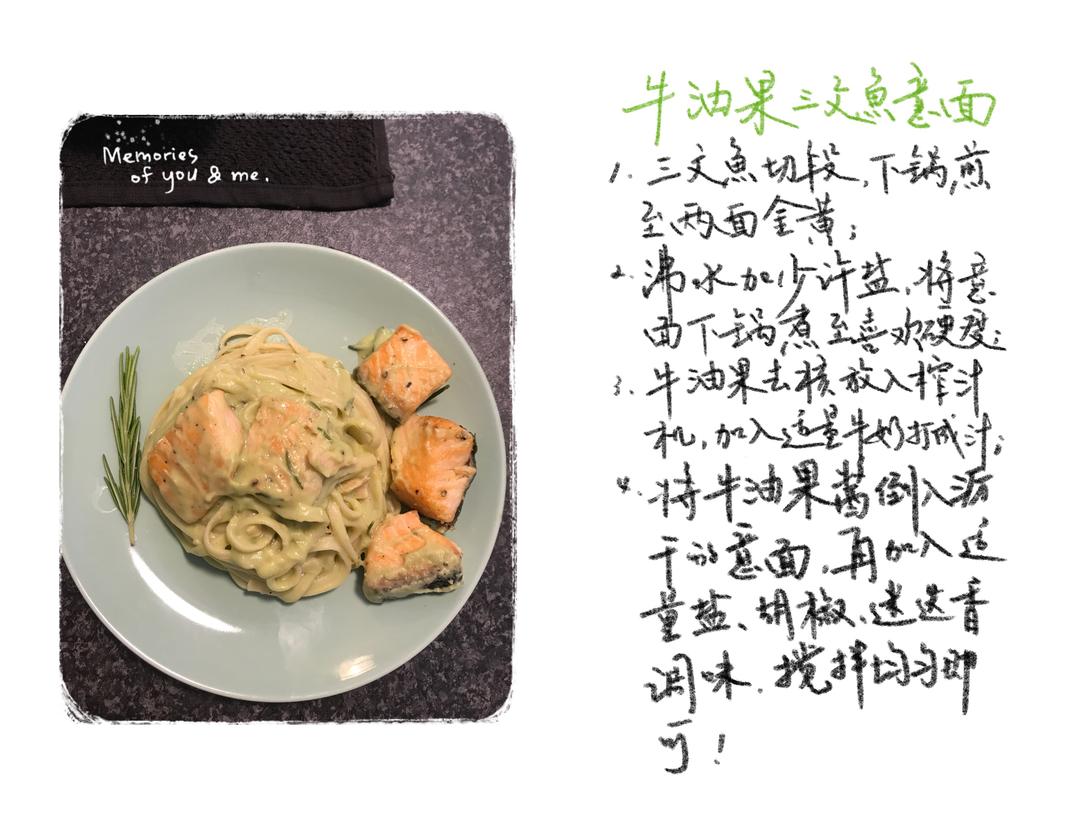 Memories
of you & me.
牛油果三文魚意面
1. 三文魚切段,下锅煎
至两面金黄;
2. 沸水加少许盐,将意
面下锅煮至喜欢硬度;
3. 牛油果去核放入榨汁
机,加入适量牛奶打成汁;
4. 将牛油果酱倒入沥
干的意面,再加入适
量盐、胡椒、迷迭香
调味,搅拌均匀即
可!